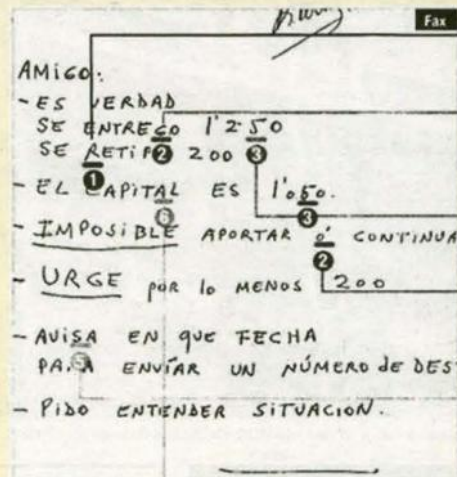 Fax
AMIGO:
- ES VERDAD
SE ENTREGO 1'250
SE RETIRO 2 200 3
1
- EL CAPITAL ES 1'050.
6
3
- IMPOSIBLE APORTAR o' CONTINUA
2
- URGE por lo MENOS 200
- AVISA EN QUE FECHA
5
PARA ENVÍAR UN NÚMERO de DES
- PIDO ENTENDER SITUACION.